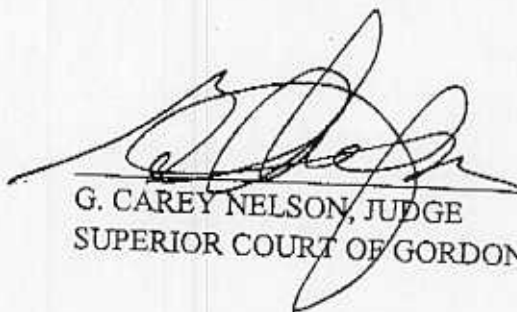 G. CAREY NELSON, JUDGE
SUPERIOR COURT OF GORDON